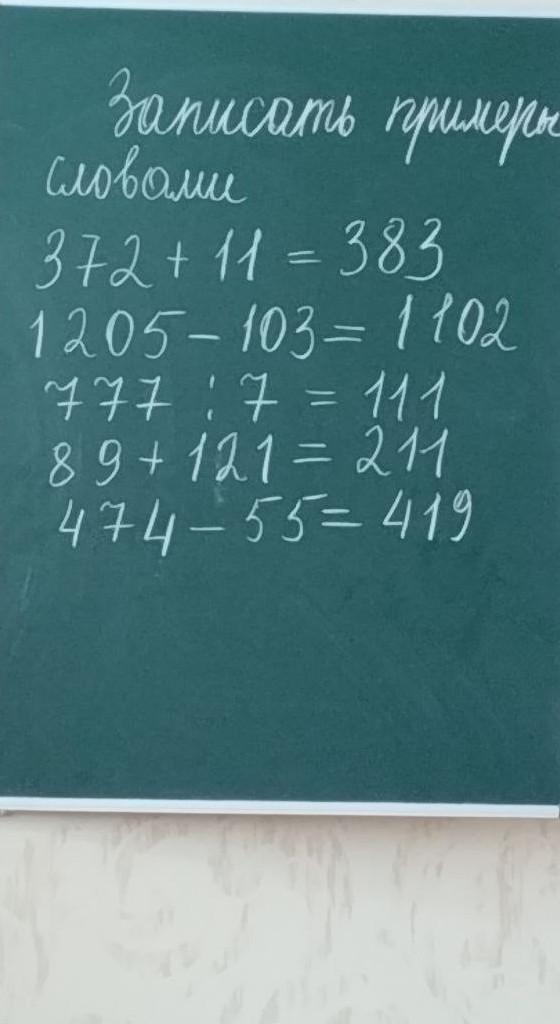 Записать примеры
словами
372 + 11 = 383
1205 - 103 = 1102
777 : 7 = 111
89 + 121 = 211
474 - 55 = 419